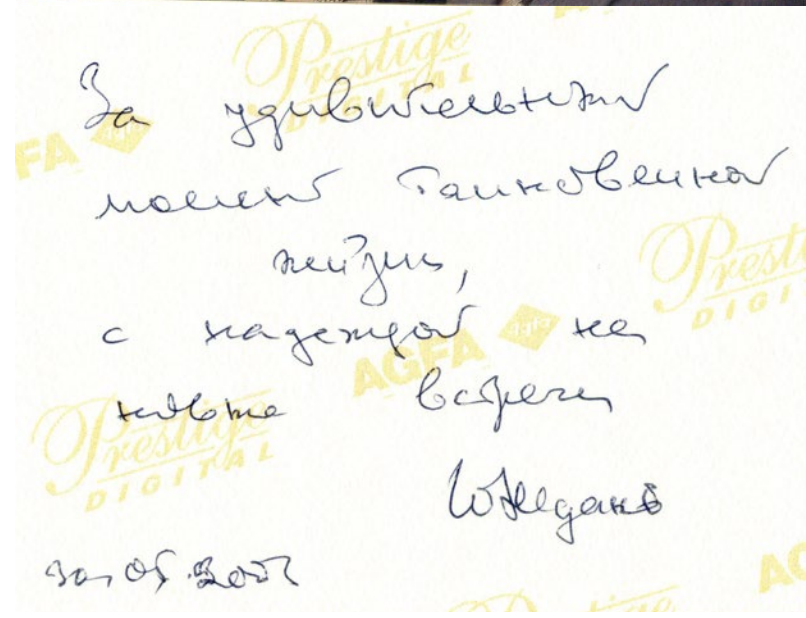 За удивительный
момент таинственной
жизни,
с надеждой на
новые встречи
ЮЖданов
30.05.2007
Prestige
DIGITAL
AGFA
Prestige
DIGITAL
AGFA
Prestige
DIGITAL